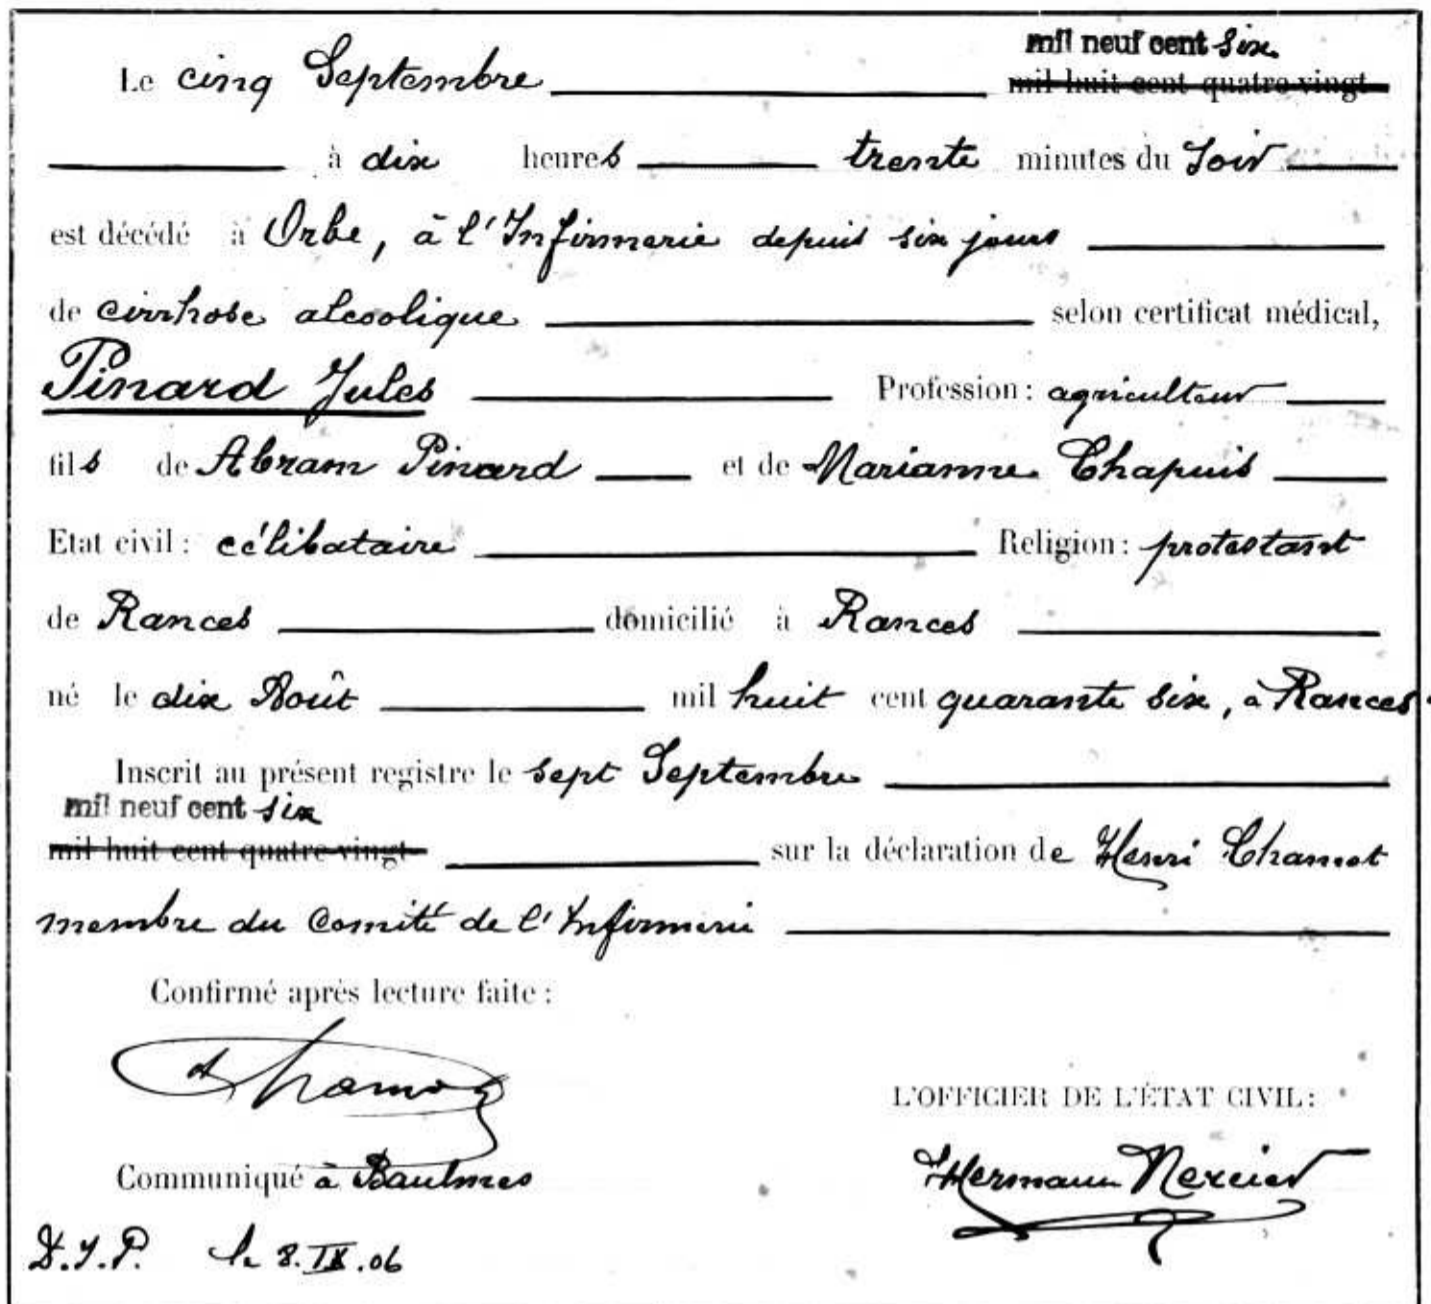 mil neuf cent six
Le cinq Septembre mil huit cent quatre-vingt
à dix heures trente minutes du Soir
est décédé à Orbe, à l'Infirmerie depuis six jours
de cirrhose alcoolique selon certificat médical,
Pinard Jules Profession : agriculteur
fils de Abram Pinard et de Marianne Chapuis
Etat civil : célibataire Religion : protestant
de Rances domicilié à Rances
né le dix Août mil huit cent quarante six, à Rances.
Inscrit au présent registre le sept Septembre
mil neuf cent six
mil huit cent quatre-vingt sur la déclaration de Henri Chamot
membre du Comité de l'Infirmerie
Confirmé après lecture faite :
Chamot
L'OFFICIER DE L'ÉTAT CIVIL :
Communiqué à Baulmes Hermann Mercier
le 8.IX.06